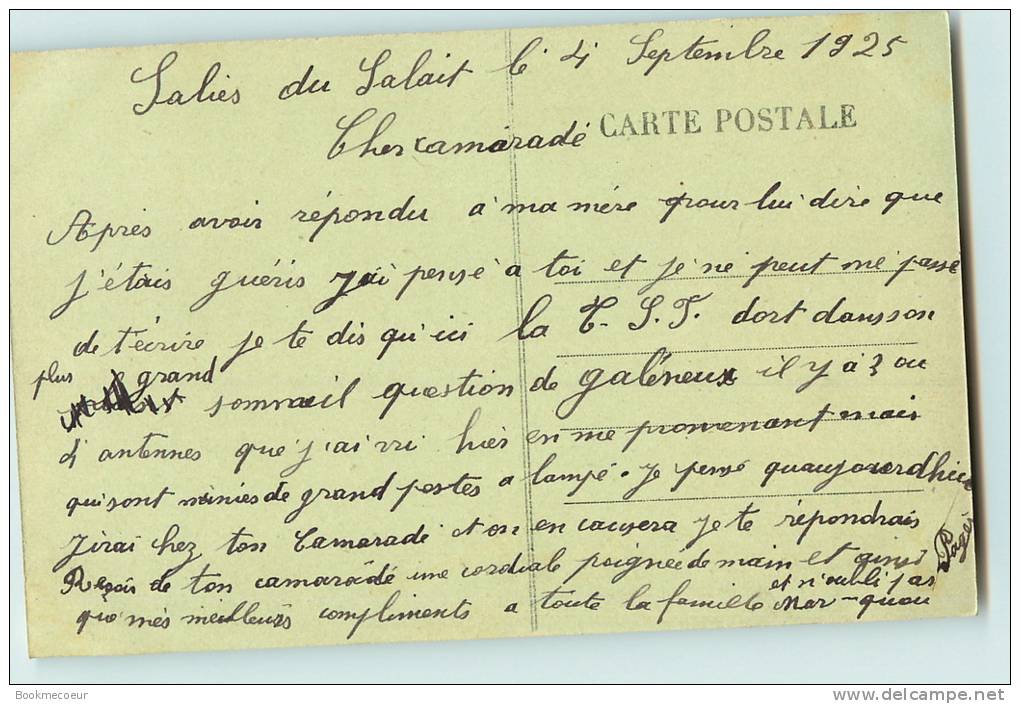 Salies du Salait le 4 Septembre 1925
CARTE POSTALE
Cher camaradé
Après avoir répondu a ma mére pour lui dire que
j'étais guéris j'ai pensé a toi et je ne peut me passé
de t'écrire je te dis qu'ici la T.S.F. dort dans son
plus grand
sommeil question de galéneux il y a 3 ou
4 antennes que j'ai vri hier en me promenant mais
qui sont miniés de grand postes a lampé. Je pensé quaujourdhui
J'irai chez ton Camaradé et on en causera je te répondrais
Reçois de ton camaradé une cordiale poignée de main et ginsi
que més meilleurs compliments a toute la famille et n'oubli pas
Mar-quou
Pagés
Bookmecoeur
delcampe.net